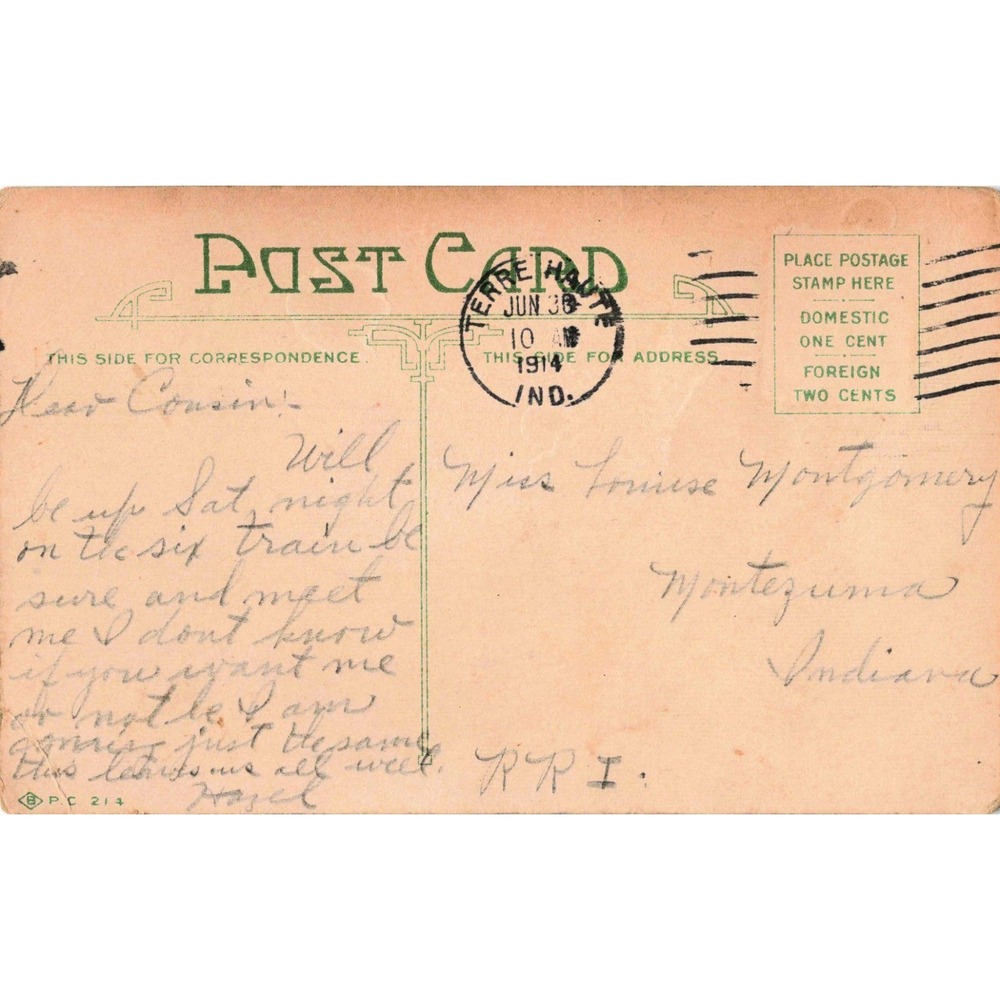 POST CARD
TERRE HAUTE
JUN 30
10 AM
1914
IND.
PLACE POSTAGE
STAMP HERE
DOMESTIC
ONE CENT
FOREIGN
TWO CENTS
THIS SIDE FOR CORRESPONDENCE.
THIS SIDE FOR ADDRESS
Dear Cousin:-
Will
be up Sat night
on the six train be
sure and meet
me I dont know
if you want me
or not be I am
coming just the same
this leaves us all well.
Hazel
Miss Louise Montgomery
Montezuma
Indiana
RR I.
B P.C. 214